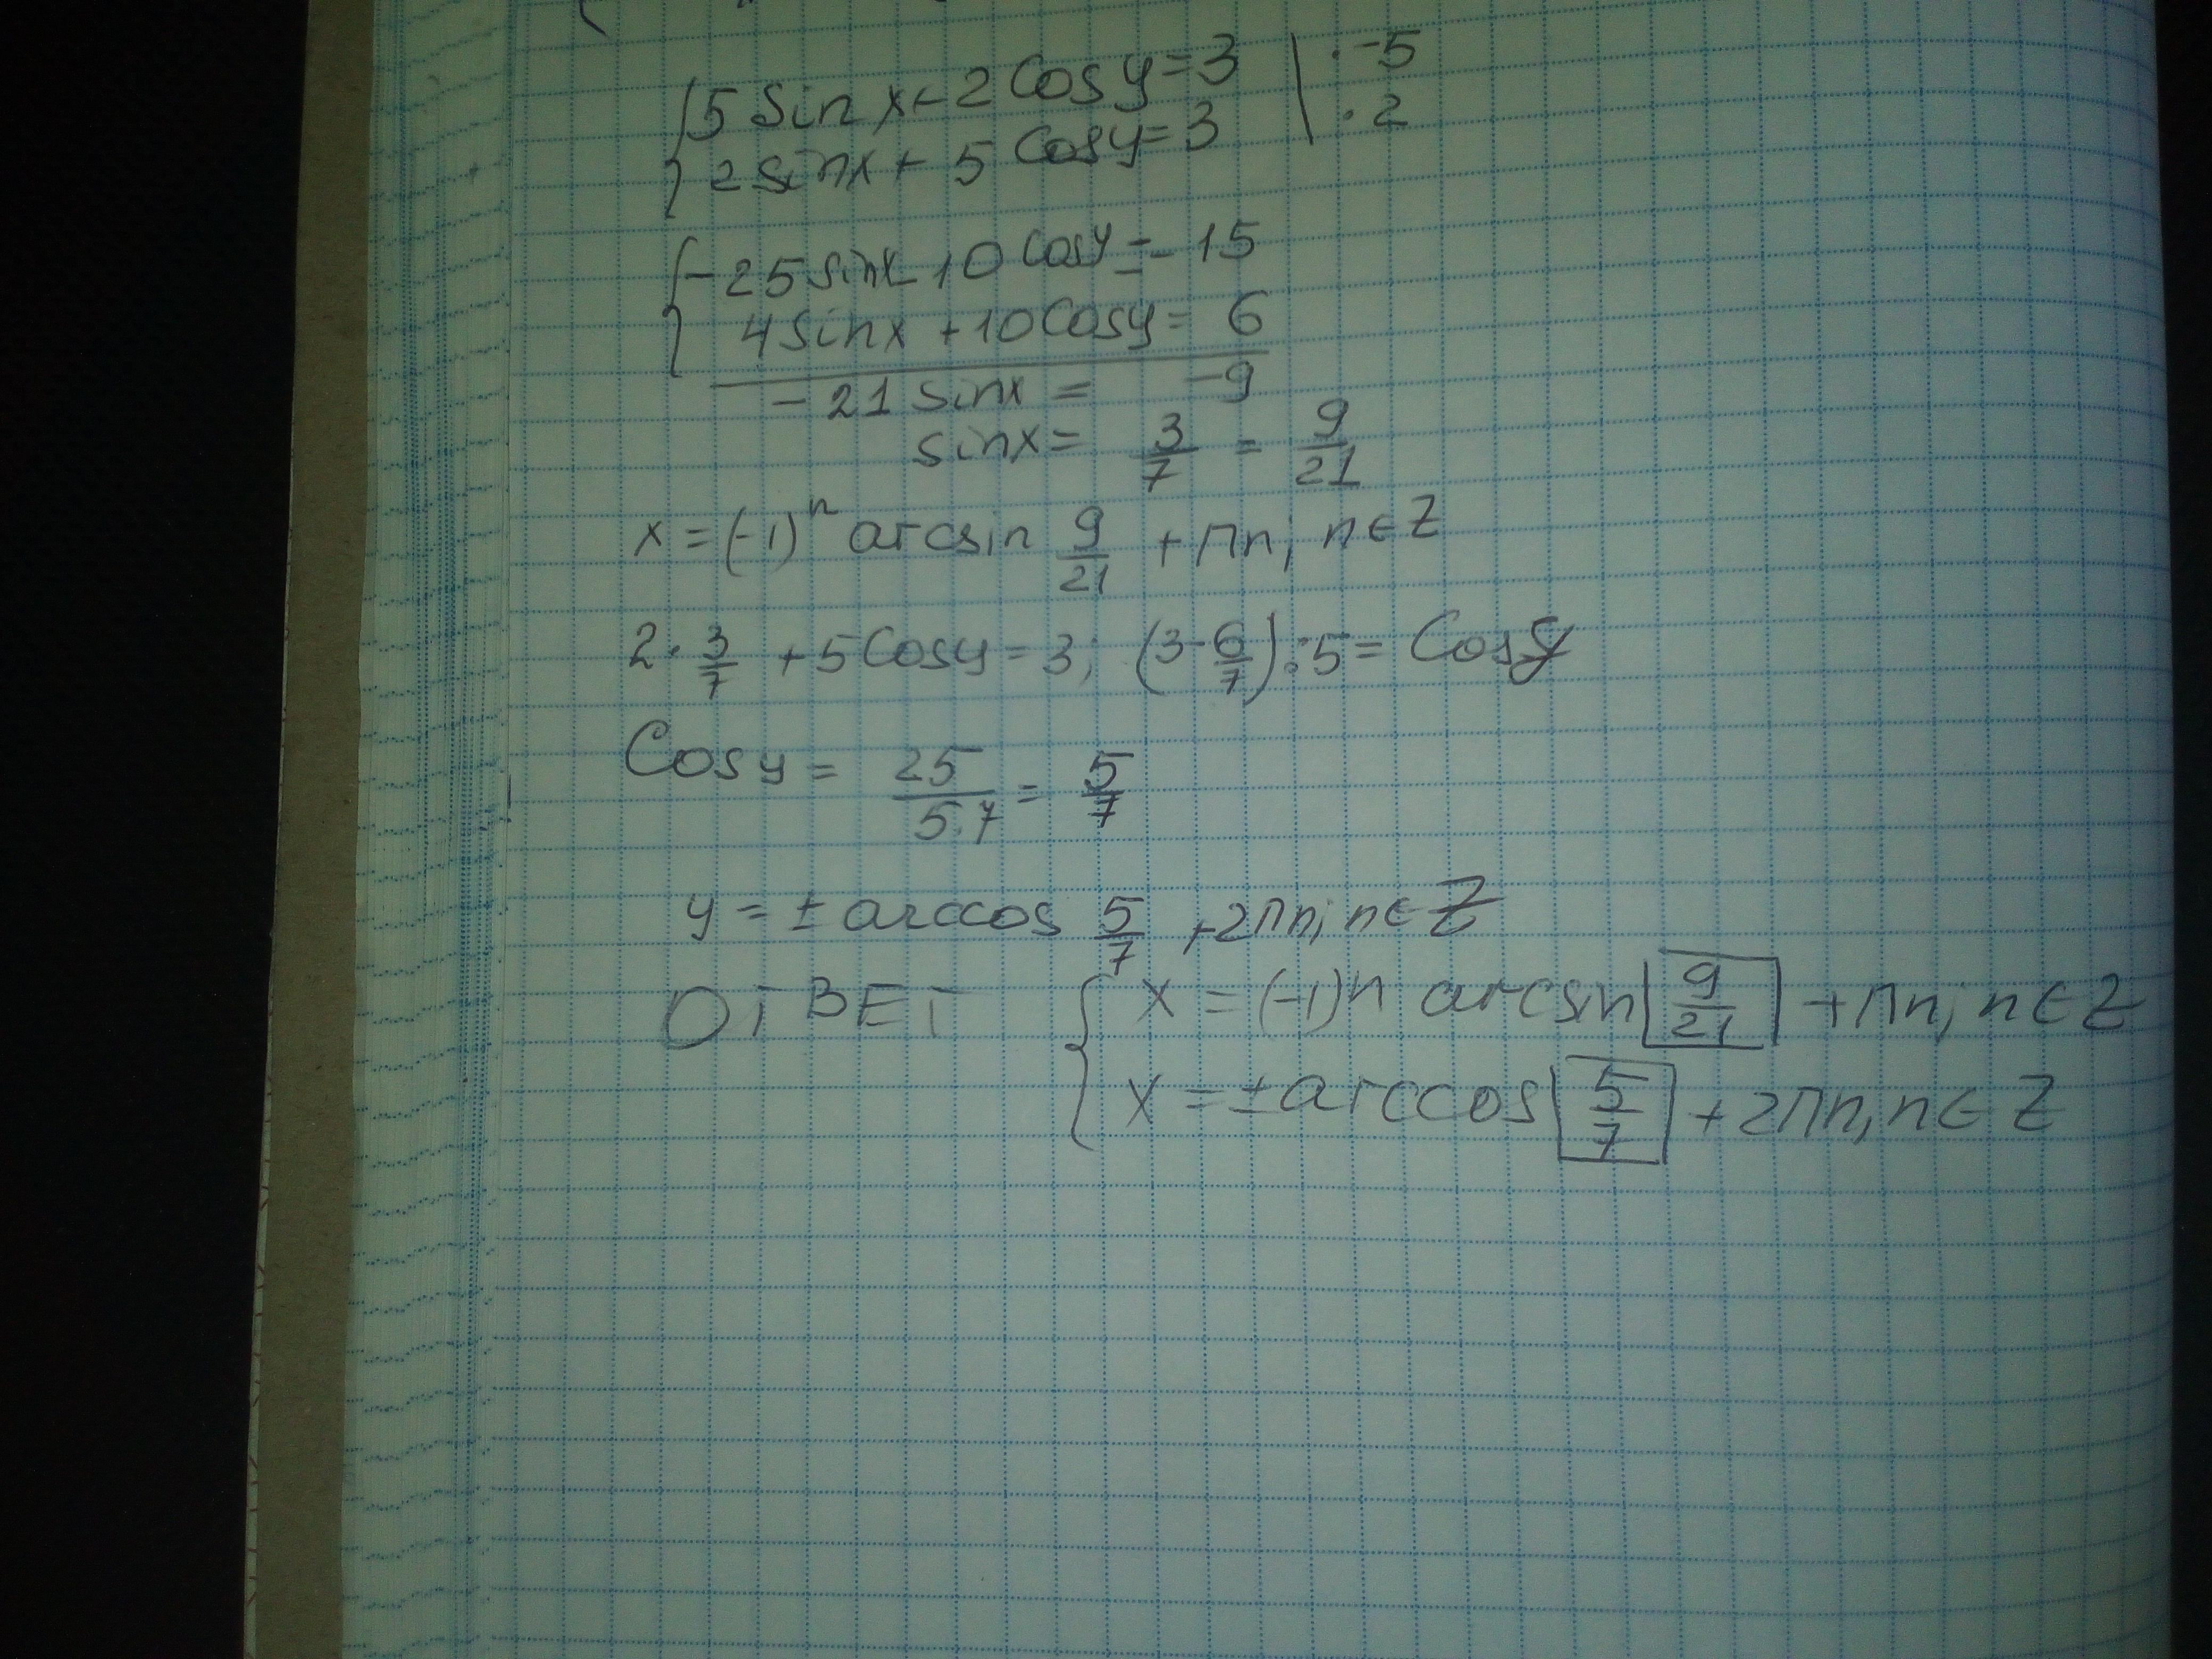 5 sin x + 2 cos y = 3 | · -5
2 sin x + 5 cos y = 3 | · 2
-25 sin x - 10 cos y = -15
4 sin x + 10 cos y = 6
-21 sin x = -9
sin x = 3/7 = 9/21
x = (-1)^n arcsin 9/21 + Пn; n ∈ Z
2 · 3/7 + 5 Cos y = 3; (3 - 6/7) : 5 = Cos y
Cos y = 25/5·7 = 5/7
y = ± arccos 5/7 + 2Пn; n ∈ Z
ОТВЕТ { x = (-1)^n arcsin 9/21 + Пn; n ∈ Z
x = ± arccos 5/7 + 2Пn, n ∈ Z